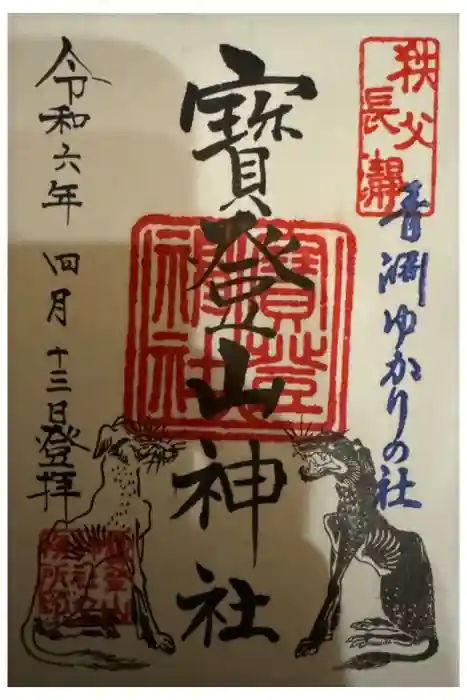 秩父
長瀞
青淵ゆかりの社
寳登山神社
寳登山
神社
令和六年 四月 十三日登拝